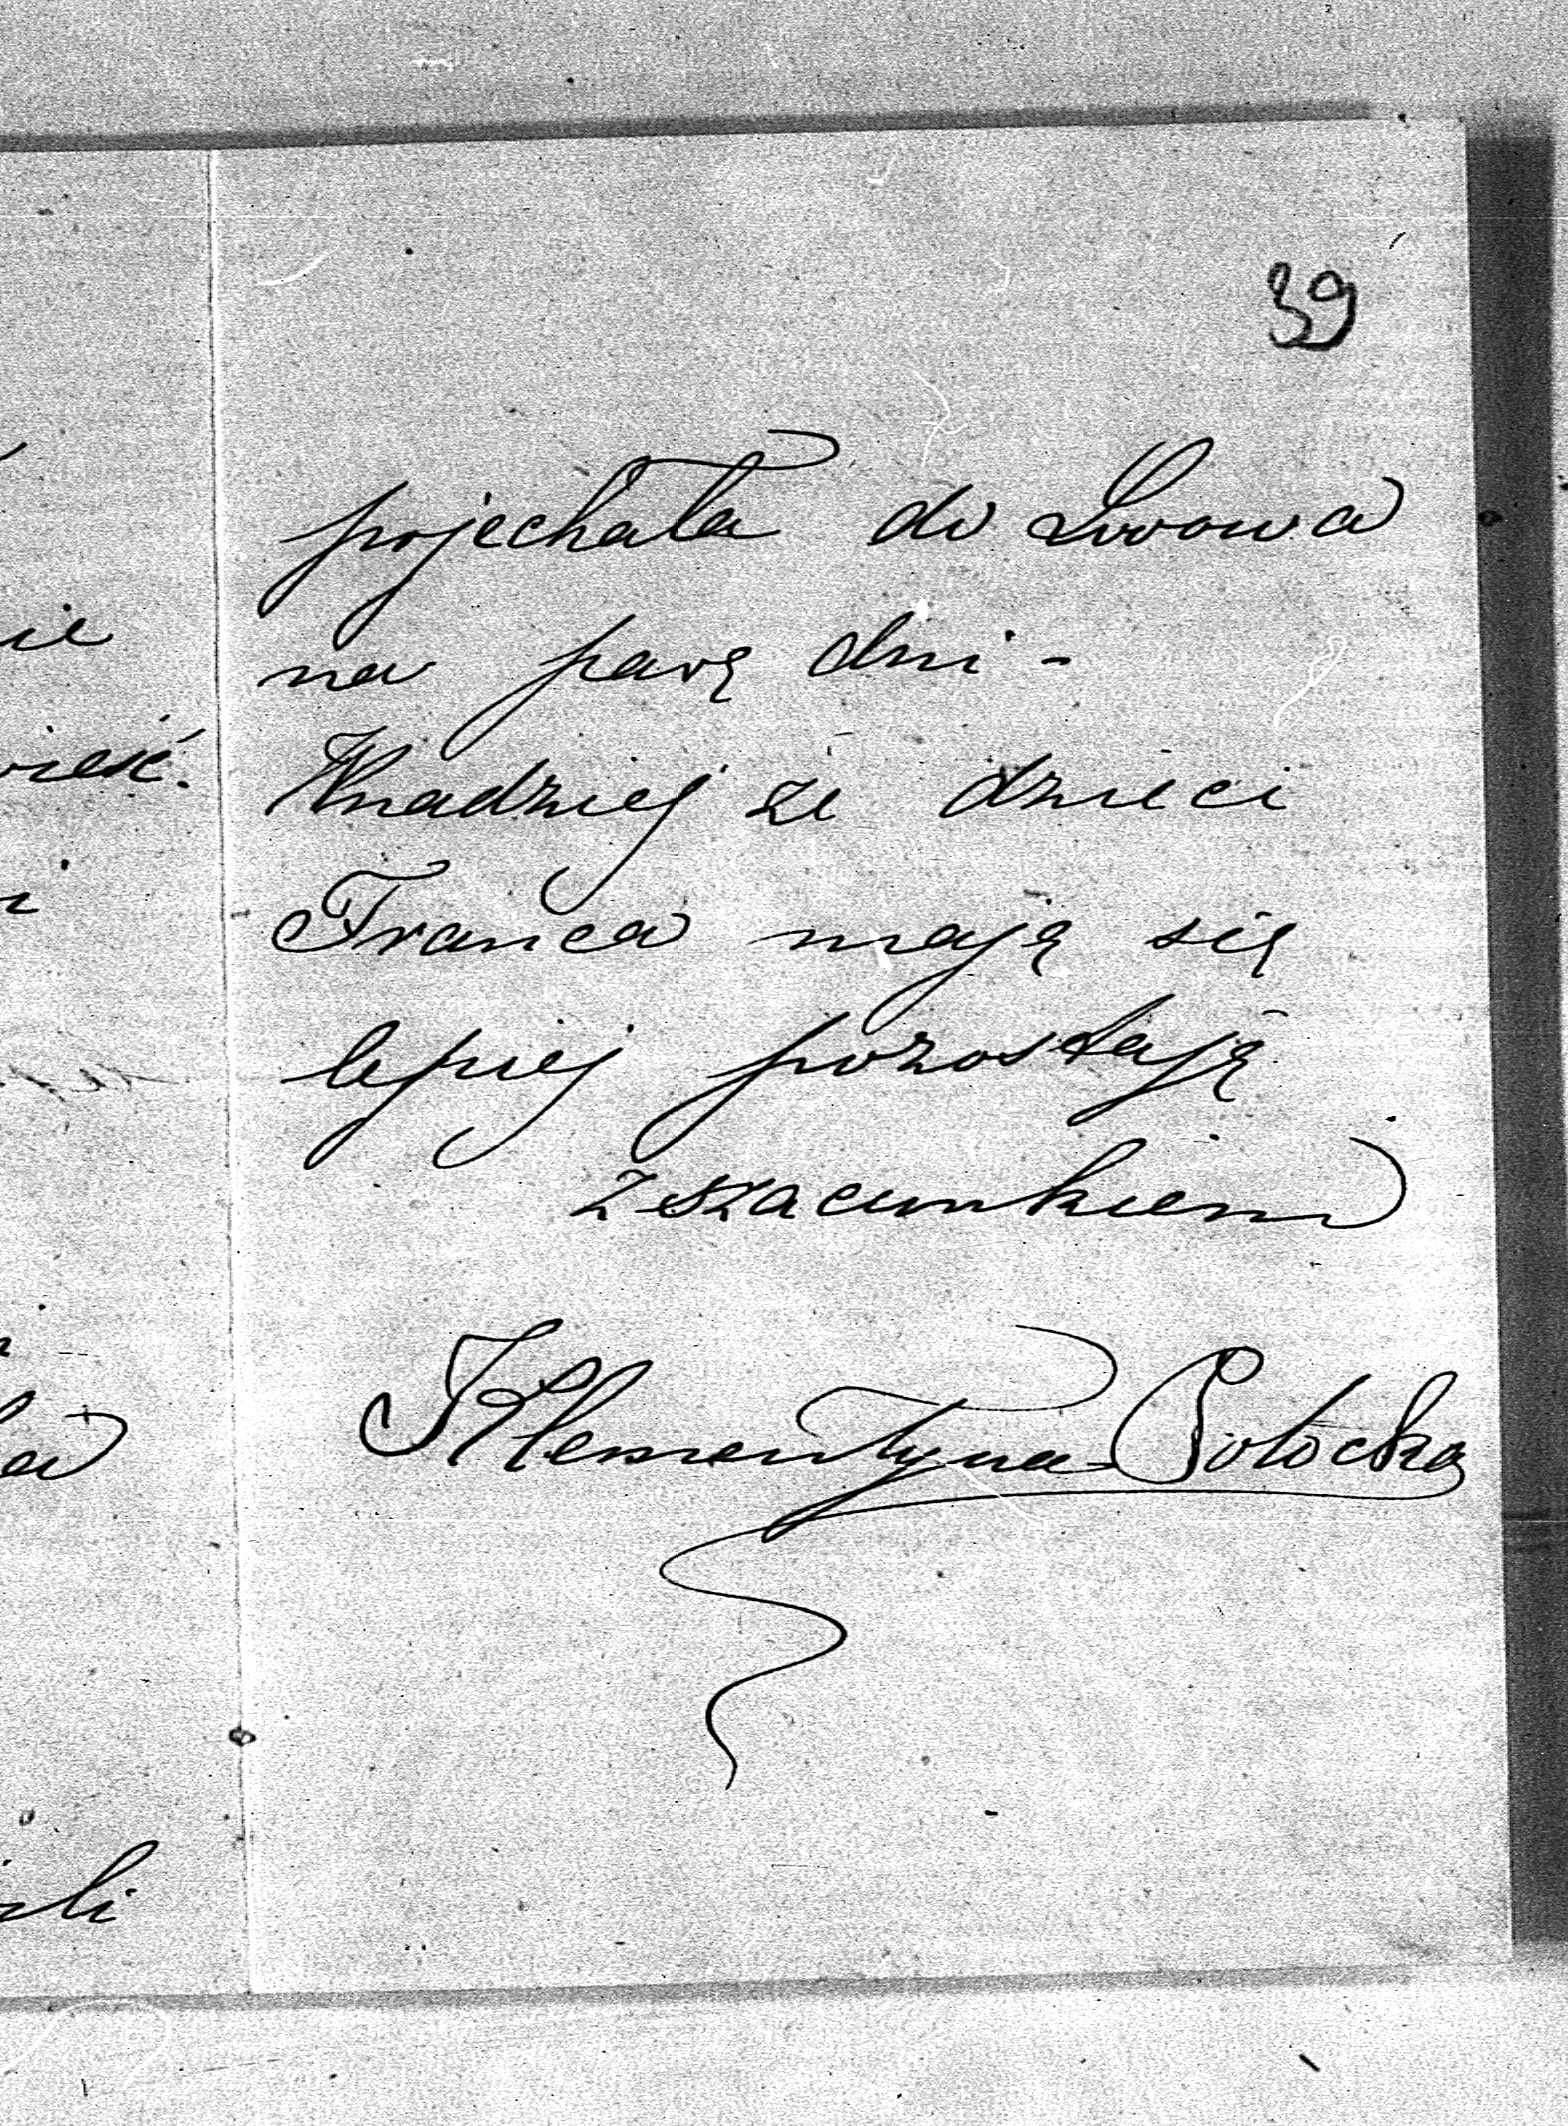 39
pojechała do Lwowa
na parę dni -
W nadziej że dzieci
Franca mają się
lepiej pozostaję
z szacunkiem
Klementyna Potocka